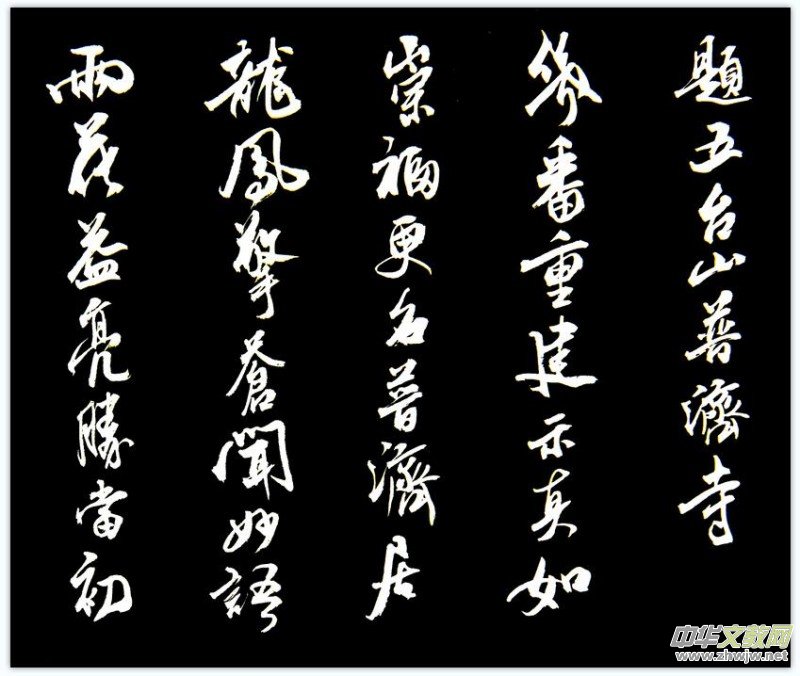 題五台山普濟寺
幾番重建示真如
崇福更名普濟居
龍鳳擎蒼聞妙語
雨花益亮勝當初
中华文教网
www.zhwjw.net